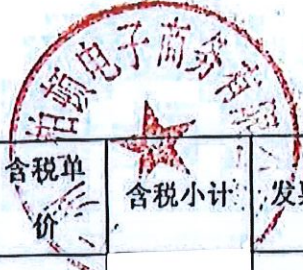 柏顿电子商务有限
含税单
价
含税小计
发